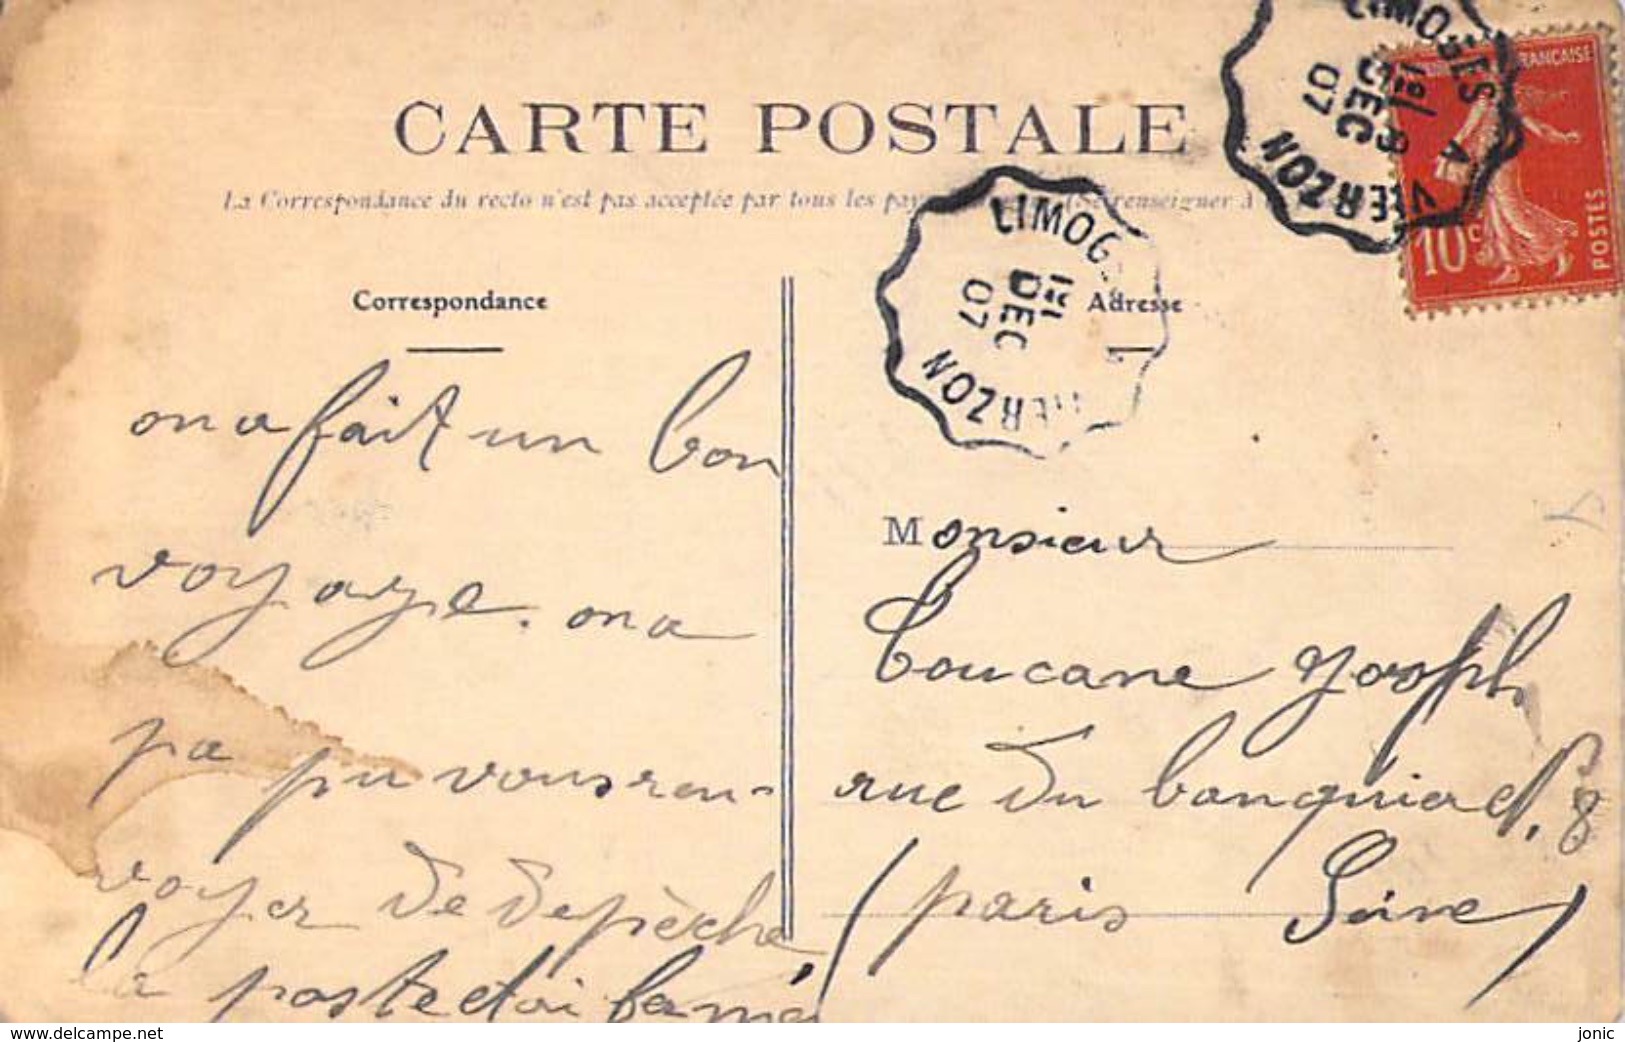 CARTE POSTALE
La Correspondance du recto n'est pas acceptée par tous les pays (Se renseigner à
Correspondance
Adresse
LIMOGES A VIERZON
DEC
07
FRANÇAISE
10c
POSTES
LIMOG
DEC
07
IERZON
on a fait un bon
voyage. on a
pa pu vous ren-
voyer de depèche
la poste etai fermé
Monsieur
Toucane Joseph
rue du banquier N. 8
(paris Seine)
www.delcampe.net
jonic